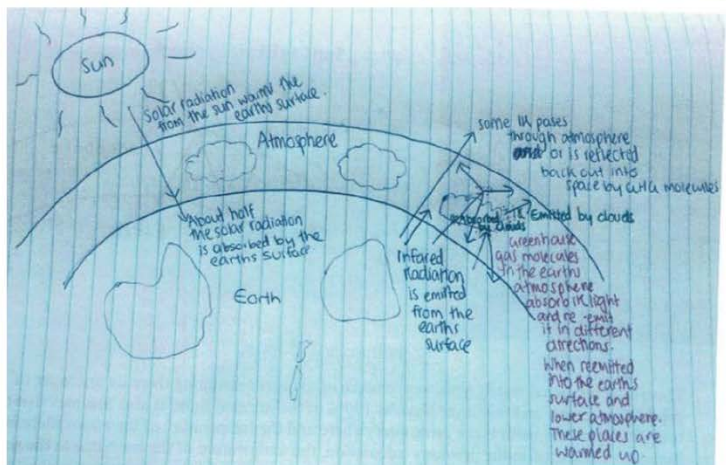 sun
solar radiation
from the sun warms the
earths surface.
Atmosphere
About half
the solar radiation
is absorbed by the
earths surface
Earth
Infared
Radiation
is emitted
from the
earths
surface
some IR pases
through atmosphere
or is reflected
back out into
space by molecules
by clouds
Emitted by clouds
greenhouse
gas molecules
in the earths
atmosphere
absorb IR light
and re-emit
it in different
directions.
When reemitted
into the earths
surface and
lower atmosphere.
These places are
warmed up.